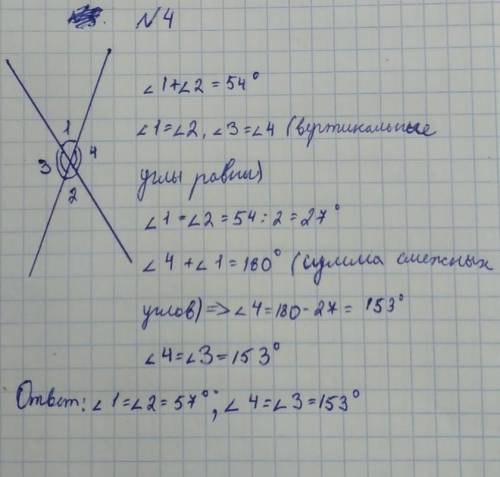 №4
∠1+∠2=54°
∠1=∠2, ∠3=∠4 (вертикальные
углы равны)
∠1=∠2=54:2=27°
∠4+∠1=180° (сумма смежных
углов)=>∠4=180-27= 153°
∠4=∠3=153°
Ответ: ∠1=∠2=57°; ∠4=∠3=153°
1
3
4
2